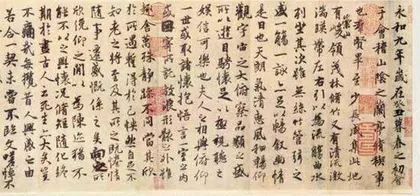 永和九年歲在癸丑暮春之初會
于會稽山陰之蘭亭脩稧事
也群賢畢至少長咸集此地
有崇山峻領茂林脩竹又有清流激
湍暎帶左右引以為流觴曲水
列坐其次雖無絲竹管弦之
盛一觴一詠亦足以暢敘幽情
是日也天朗氣清惠風和暢仰
觀宇宙之大俯察品類之盛
所以遊目騁懷足以極視聽之
娛信可樂也夫人之相與俯仰
一世或取諸懷抱悟言一室之內
或因寄所託放浪形骸之外雖
趣舍萬殊靜躁不同當其欣
於所遇暫得於己快然自足不
知老之將至及其所之既惓情
隨事遷感慨係之矣向之所
欣俛仰之間以為陳迹猶不
能不以之興懷況脩短隨化終
期於盡古人云死生亦大矣豈
不痛哉每攬昔人興感之由
若合一契未嘗不臨文嗟悼不